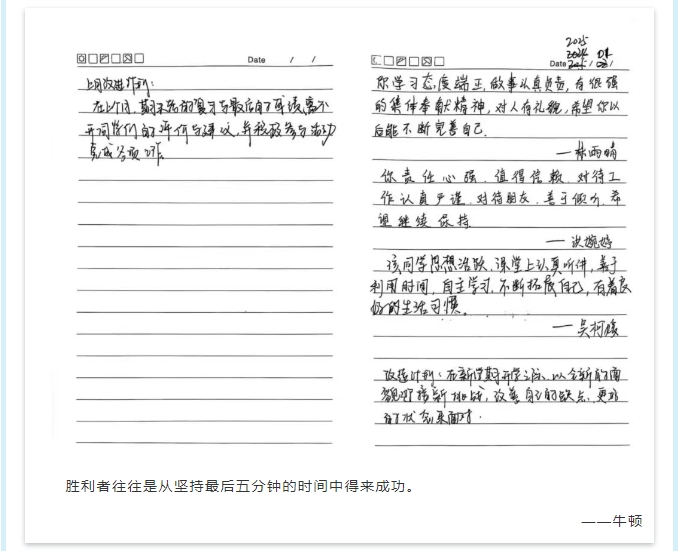 Date / /
上月改进计划:
在上个月,期末总的复习与最后的成绩离不
开同学们的评价与建议,并积极参与活动
完成各项工作。
2025
Date
你学习态度端正,做事认真负责,有很强
的集体奉献精神,对人有礼貌,希望你以
后能不断完善自己.
你责任心强、值得信赖、对待工
作认真严谨、对待朋友、善于倾听、希
望继续保持
——洪婉婷
该同学思想活跃、课堂上认真听讲,善于
利用时间,自主学习,不断拓展自己,有着良
好的生活习惯。
改进计划:在新学期开学之际、以全新的面
貌迎接新挑战,改善自己的缺点、更好
的状态来面对.
胜利者往往是从坚持最后五分钟的时间中得来成功。
——牛顿